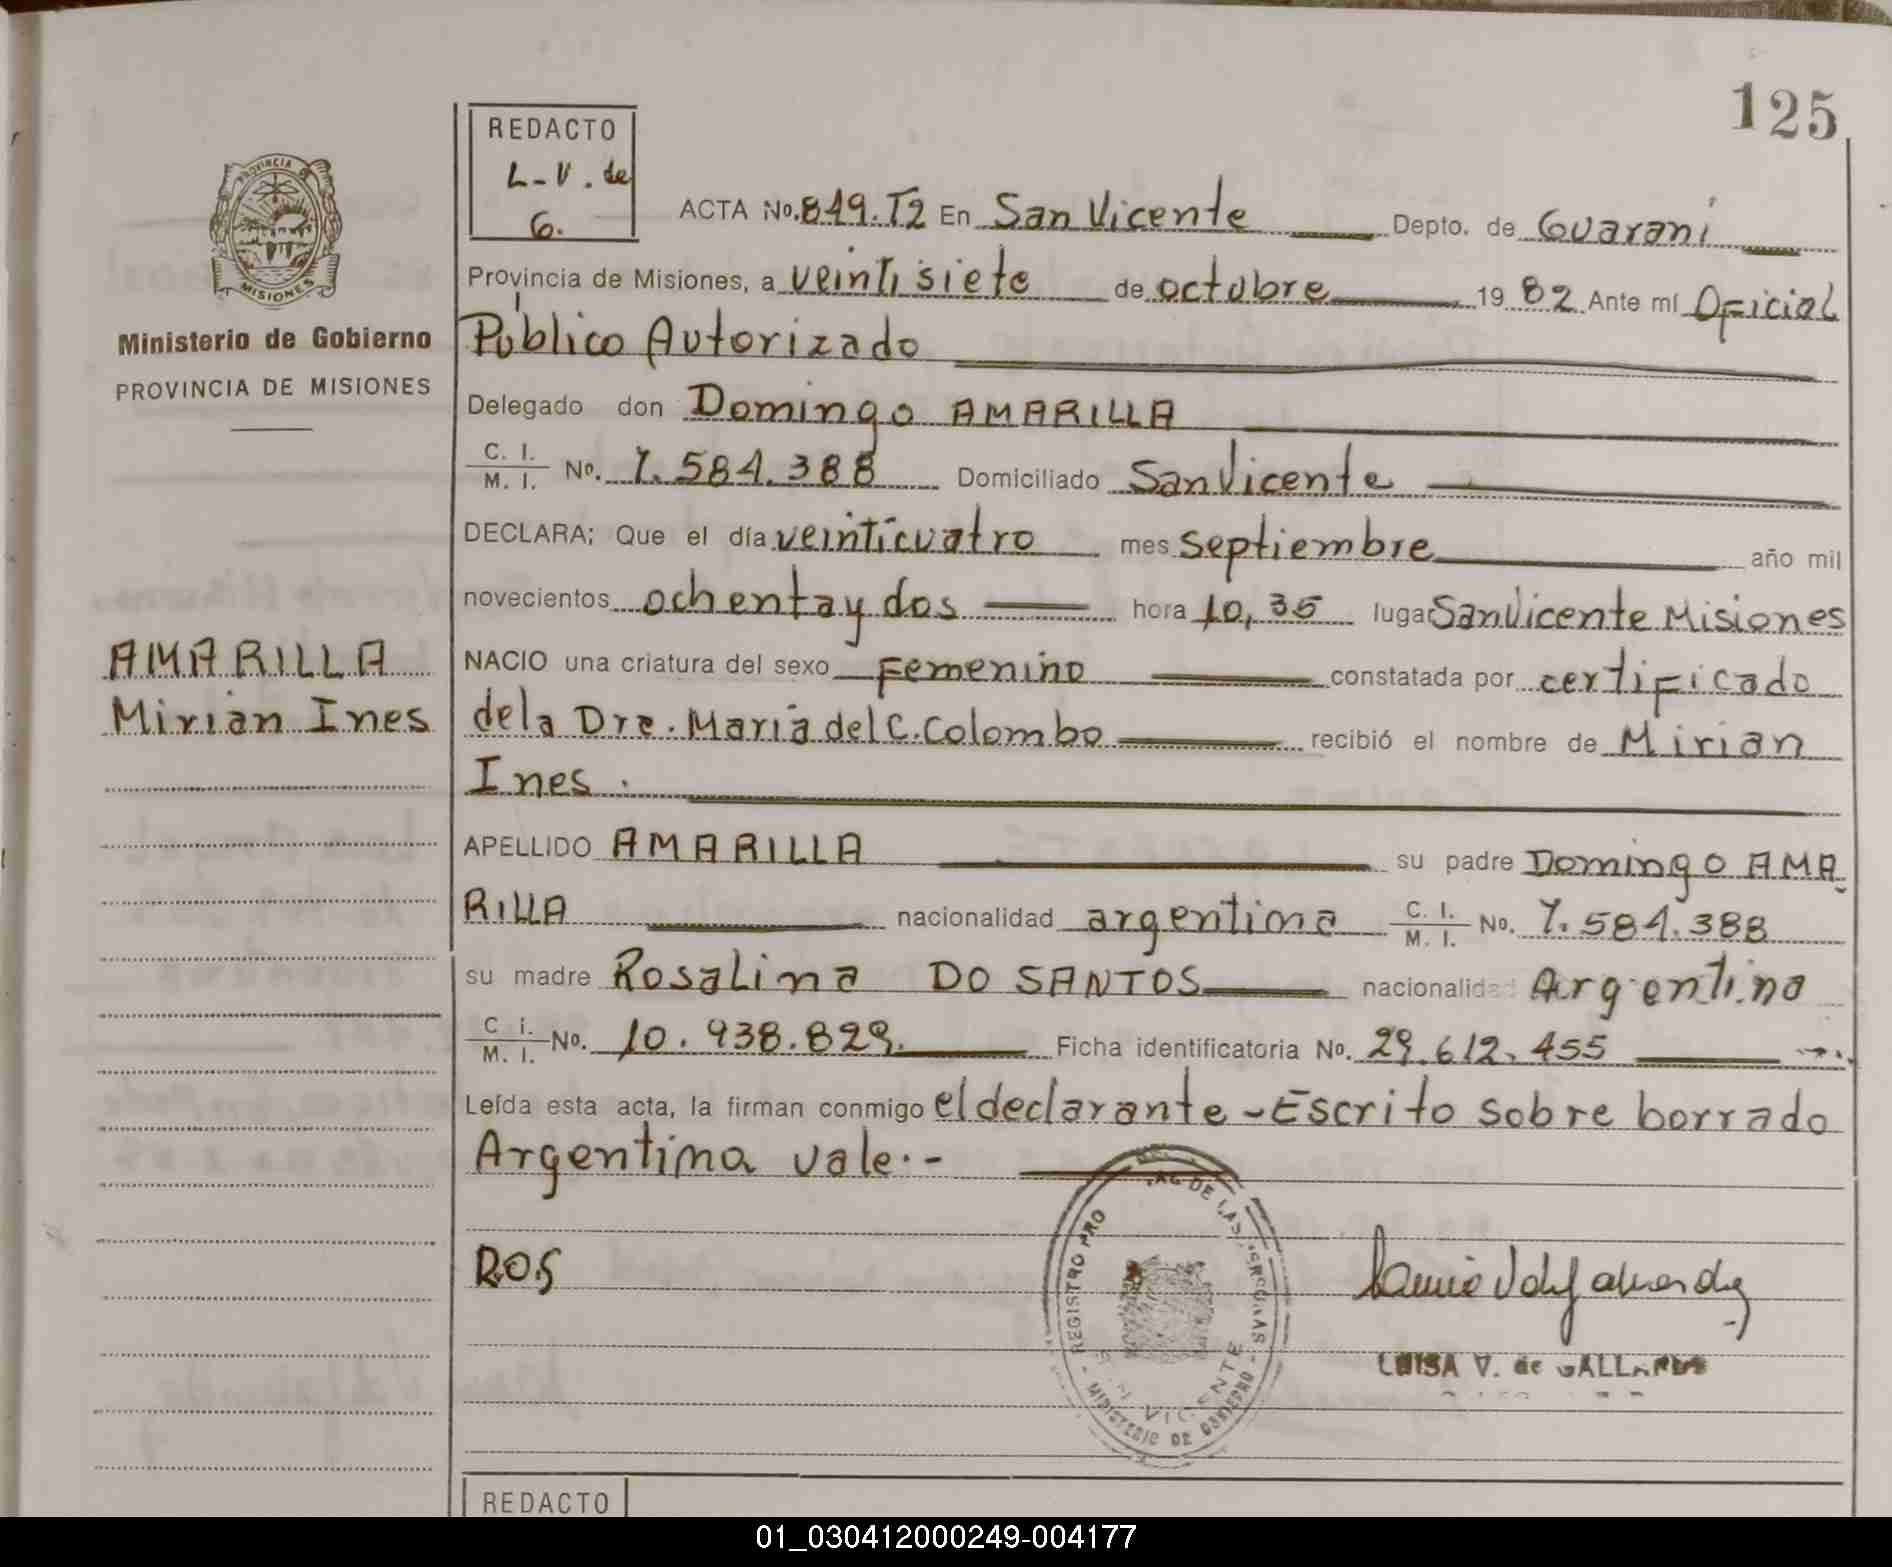 125
REDACTO
L-V. de
G.
PROVINCIA DE
MISIONES
Ministerio de Gobierno
PROVINCIA DE MISIONES
AMARILLA
Mirian Ines
ACTA No. 849.T2 En San Vicente Depto. de Guarani
Provincia de Misiones, a veinti siete de octubre 19 82 Ante mí Oficial
Público Autorizado
Delegado don Domingo AMARILLA
C. I.
M. I. No. 7.584.388 Domiciliado San Vicente
DECLARA; Que el día veinticuatro mes septiembre año mil
novecientos ochenta y dos hora 10,35 lugar San Vicente Misiones
NACIO una criatura del sexo Femenino constatada por certificado
de la Dre. Maria del C. Colombo recibió el nombre de Mirian
Ines.
APELLIDO AMARILLA su padre Domingo AMA
RILLA nacionalidad argentina C. I. M. I. No. 7.584.388
su madre Rosalina DO SANTOS nacionalidad Argentina
C. i. M. I. No. 10.938.829. Ficha identificatoria No. 29.612.455
Leída esta acta, la firman conmigo el declarante - Escrito sobre borrado
Argentina vale.-
ROS
REGISTRO PRO DE LAS PERSONAS
VICENTE
MINISTERIO DE GOBIERNO
LUISA V. de GALLARDO
REDACTO
01_030412000249-004177